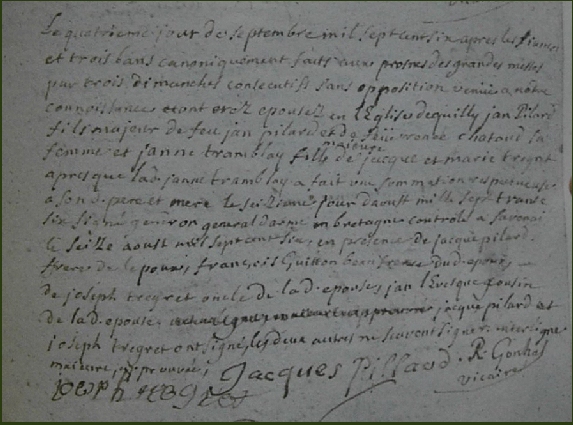 Le quatrieme jour de septembre mil sept cent six apres les fiances
et trois bans canoniquement faits aux prosnes des grandes messes
par trois dimanches consecutifs sans opposition venüe a notre
connoissance ont etez epousez en l'Eglise de quilly jan Pilard
fils majeur de feu jan pilard et de feüe renée chatond sa
majeure
femme et janne tramblay fille de jacque et marie tregret
apres que lad. janne tramblay a fait une sommation respectueuse
a son d. pere et mere le seizieme jour daoust mille sept
six signé general darme en bretagne controlé a savenai
le seize aoust mil sept cent six, en presence de jacque pilard
frere de lepouxs, françois Guitton beau frere dud. epouxs,
de joseph tregret oncle de lad. epouse, jan l'Evesque cousin
de lad. epouse, jacque pilard et
joseph tregret ont signé, les deux autres ne scavent signer, interligne
majeure, approuvée,
joseph tregret Jacques Pillard R. Gonhel
vicaire